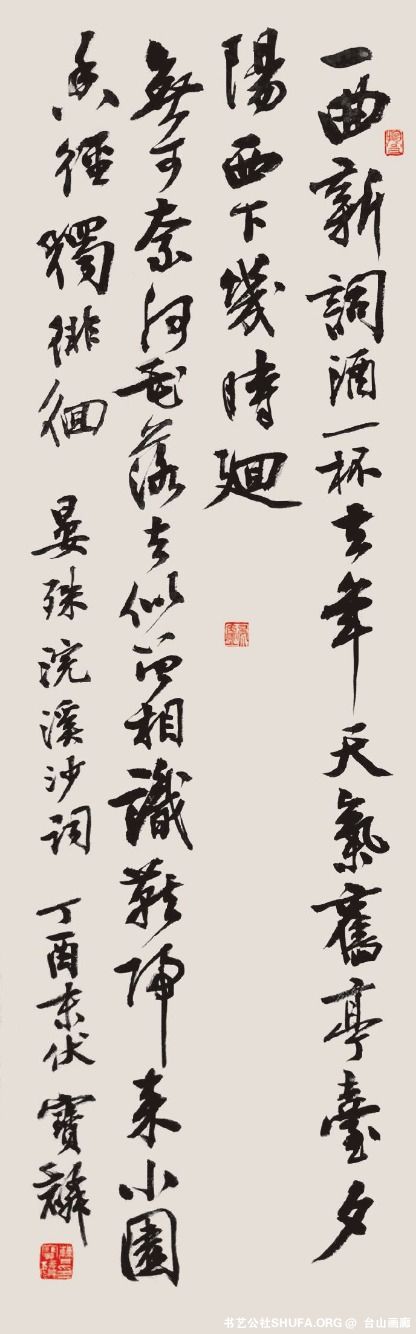 一曲新詞酒一杯去年天氣舊亭臺夕
陽西下幾時廻
無可奈何花落去似曾相識燕歸來小園
香徑獨徘徊 晏殊浣溪沙詞 丁酉末伏 寶麟
书艺公社SHUFA.ORG @ 台山画廊